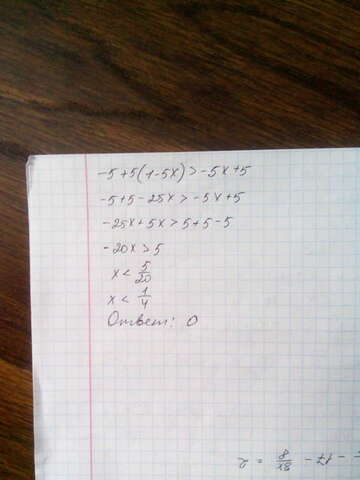 -5+5(1-5x)>-5x+5
-5+5-25x>-5x+5
-25x+5x>5+5-5
-20x>5
x<5/20
x<1/4
Ответ: 0